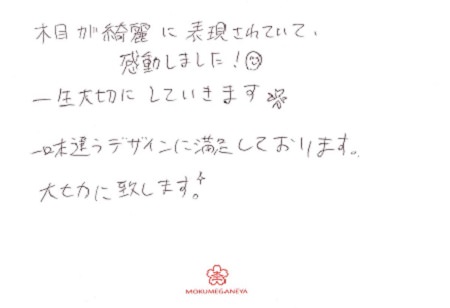 木目が綺麗に表現されていて、
感動しました!
一生大切にしていきます
一味違うデザインに満足しております。
大切に致します。
MOKUMEGANEYA